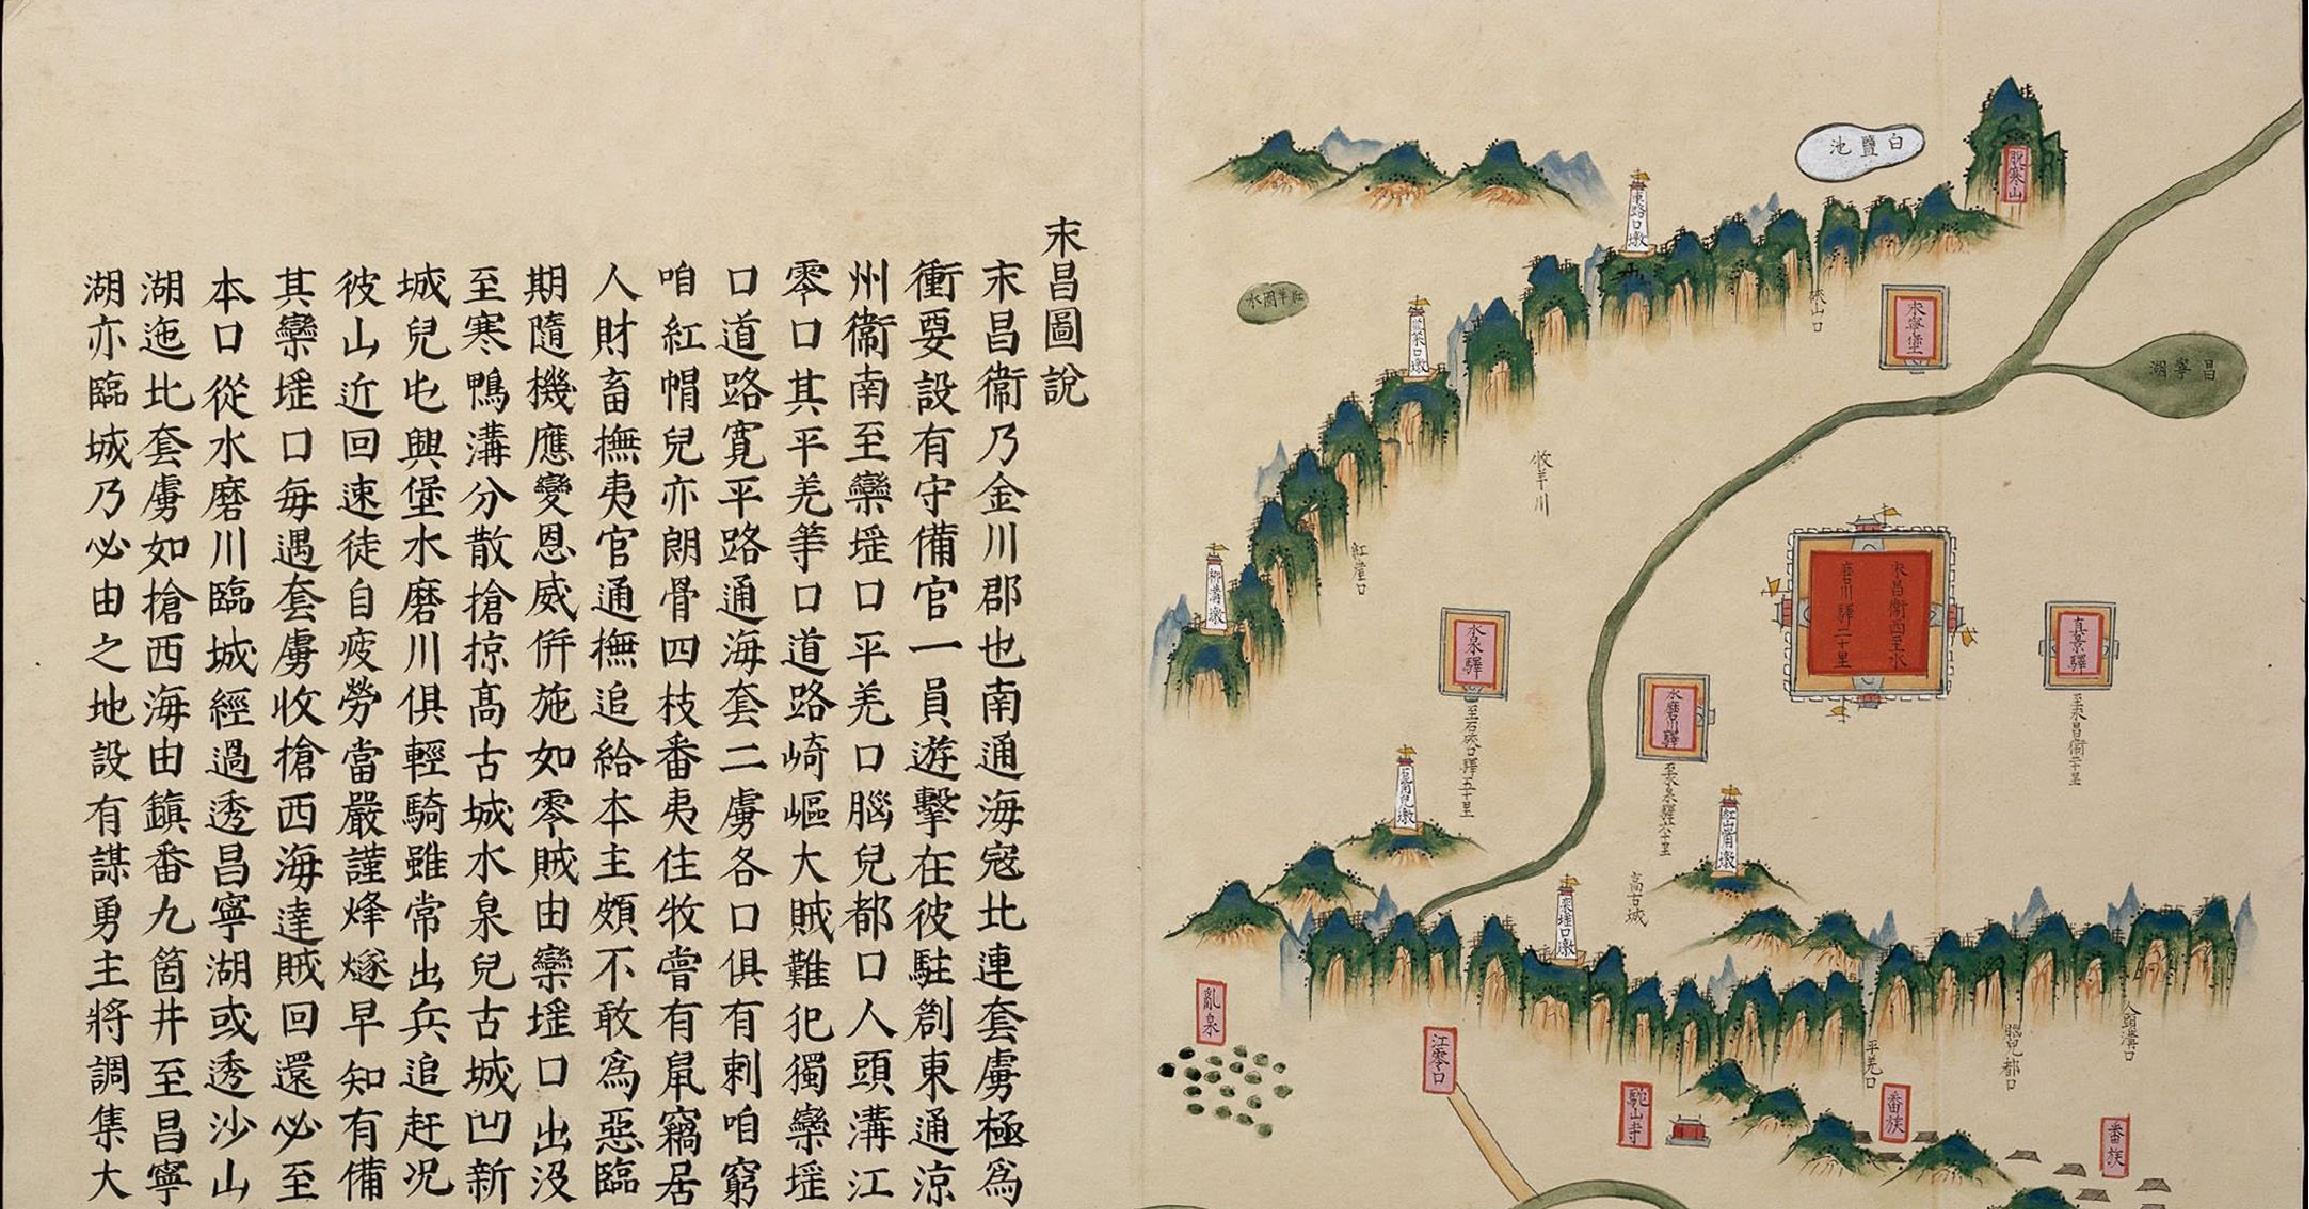 永昌圖說
永昌衛乃金川郡也南通海寇北連套虜極爲
衝要設有守備官一員遊擊在彼駐劄東通涼
州衛南至欒㙜口平羌口腦兒都口人頭溝江
零口其平羌等口道路崎嶇大賊難犯獨欒㙜
口道路寬平路通海套二虜各口俱有剌咱窮
咱紅帽兒亦朗骨四枝番夷住牧嘗有鼠竊居
人財畜撫夷官通撫追給本主頗不敢爲惡臨
期隨機應變恩威併施如零賊由欒㙜口出沒
至寒鴨溝分散搶掠高古城水泉兒古城凹新
城兒屯興堡水磨川俱輕騎雖常出兵追赶况
彼山近回速徒自疲勞當嚴謹烽燧早知有備
其欒㙜口每遇套虜收搶西海達賊回還必至
本口從水磨川臨城經過透昌寧湖或透沙山
湖迤北套虜如搶西海由鎮番九箇井至昌寧
湖亦臨城乃必由之地設有謀勇主將調集大
白鹽池
脫寒山
東路口墩
永寧堡
昌寧湖
牧羊川
紅崖口
永昌衛西至水
磨川驛二十里
真景驛
至永昌衛二十里
水泉驛
至石硤台驛五十里
水磨川驛
至水泉驛六十里
紅山觜墩
高古城
欒㙜口墩
亂泉
江零口
平羌口
腦兒都口
人頭溝口
番族
番族